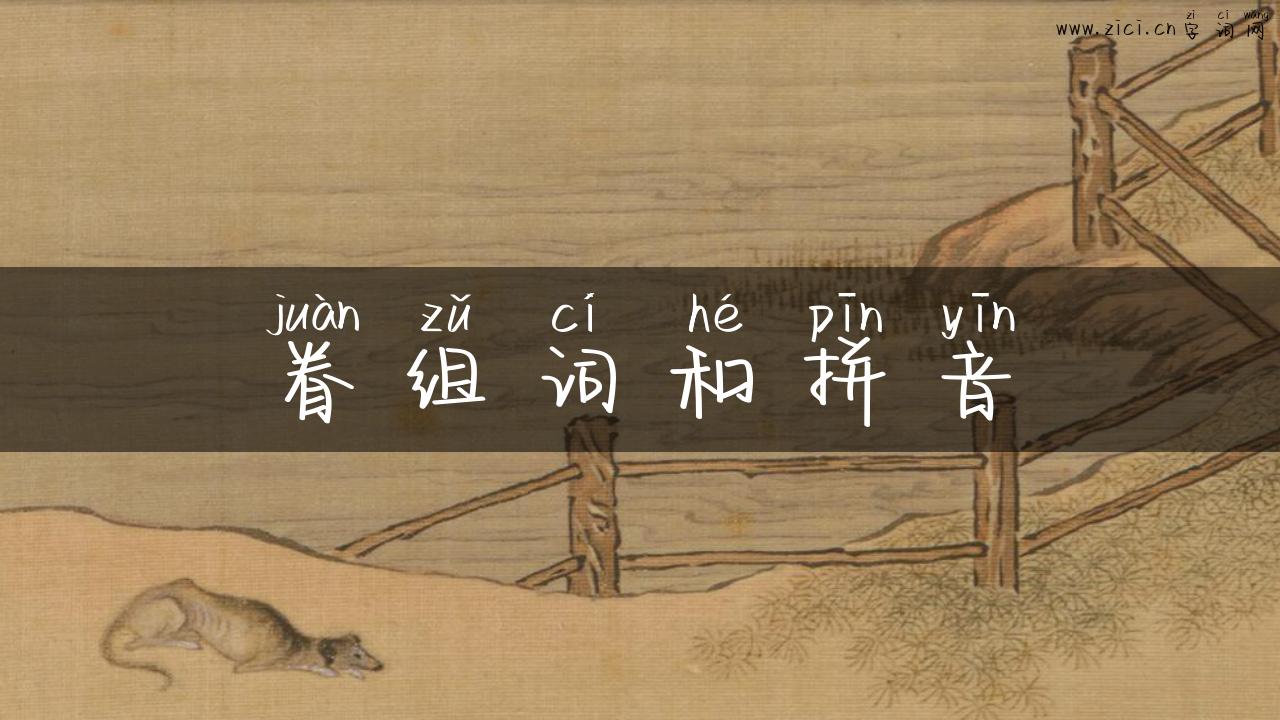 zì cí wǎng
www.zici.cn 字词网
juàn zǔ cí hé pīn yīn
眷组词和拼音